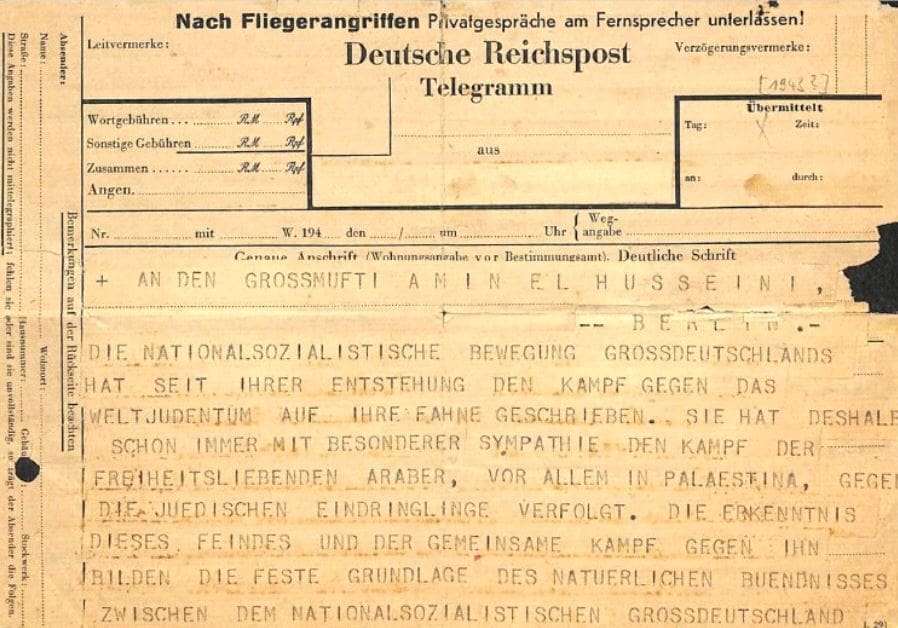 Nach Fliegerangriffen Privatgespräche am Fernsprecher unterlassen!
Leitvermerke:
Deutsche Reichspost
Verzögerungsvermerke:
Telegramm
[1943?]
Wortgebühren ... RM Rpf
Sonstige Gebühren RM Rpf
Zusammen ...... RM Rpf
Angen.
aus
Übermittelt
Tag: Zeit:
an: durch:
Nr. mit W. 194 den / um Uhr { Weg-
angabe
Genaue Anschrift (Wohnungsangabe vor Bestimmungsamt). Deutliche Schrift
+ AN DEN GROSSMUFTI AMIN EL HUSSEINI,
-- BERLIN.-
DIE NATIONALSOZIALISTISCHE BEWEGUNG GROSSDEUTSCHLANDS
HAT SEIT IHRER ENTSTEHUNG DEN KAMPF GEGEN DAS
WELTJUDENTUM AUF IHRE FAHNE GESCHRIEBEN. SIE HAT DESHALB
SCHON IMMER MIT BESONDERER SYMPATHIE DEN KAMPF DER
FREIHEITSLIEBENDEN ARABER, VOR ALLEM IN PALAESTINA, GEGEN
DIE JUEDISCHEN EINDRINGLINGE VERFOLGT. DIE ERKENNTNIS
DIESES FEINDES UND DER GEMEINSAME KAMPF GEGEN IHN
BILDEN DIE FESTE GRUNDLAGE DES NATUERLICHEN BUENDNISSES
ZWISCHEN DEM NATIONALSOZIALISTISCHEN GROSSDEUTSCHLAND
Bemerkungen auf der Rückseite beachten
Absender:
Name: Wohnort:
Straße: Hausnummer: Gebäu Stockwerk:
Diese Angaben werden nicht mittelegraphiert; fehlen sie oder sind sie unvollständig, so trägt der Absender die Folgen.